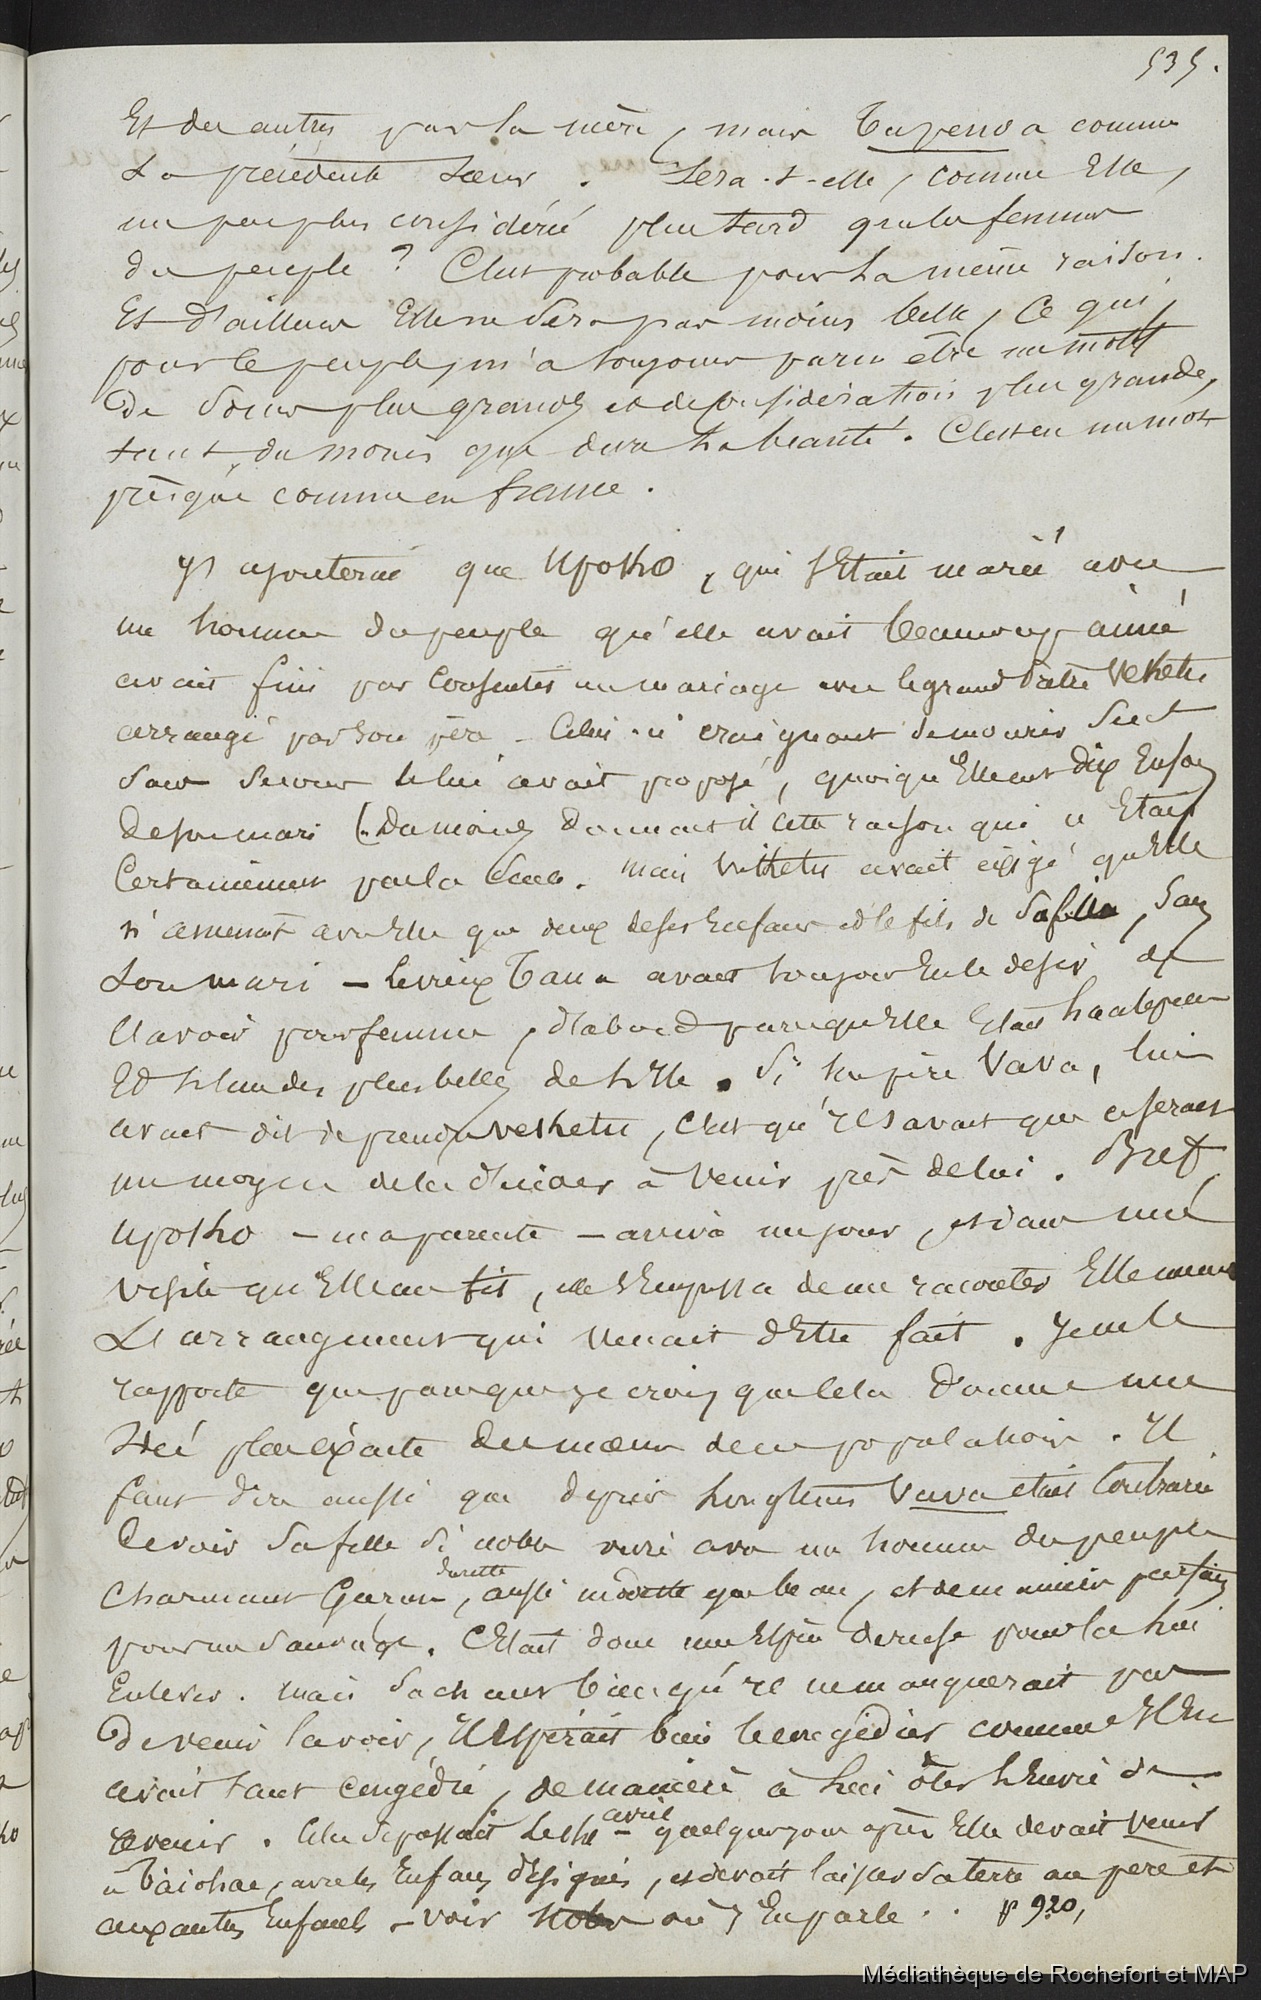 535.
Et des autres par la mère, mais Tapenoa comme
La précédente Sœur. Sera-t-elle, comme Elle,
un peu plus considérée plus tard que les femmes
du peuple ? C'est probable pour la même raison.
Et d'ailleurs Elle ne Sera pas moins belle, Ce qui,
pour le peuple, m'a toujours paru être un motif
De Soins plus grands et de considération plus grande,
tant du moins que dure la beauté. C'est en un mot
presque comme en france.
J'ajouterai que Upoko, qui s'Etait mariée avec
un homme du peuple qu'elle avait beaucoup aimé
avait fini par Consentir un mariage avec le grand Vekete
arrangé par Son père. Celui-ci craignant de mourir Seul
Sans Secours le lui avait proposé, quoiqu'Elle eut dix Enfans
De Son mari (Du moins Donnait il cette raison qui n'Etait
Certainement pas la Seule. Mais Veketu avait exigé qu'Elle
n'amenat avec Elle que deux de Ses Enfans et le fils de Sa fille, Sans
Son mari - Le vieux Taua avait toujours Eu le desir de
l'avoir pour femme, d'abord parcequ'Elle Etait haatepeiu
Et l'une des plus belles de l'ile. Si Son père Vava, lui
avait dit de prendre Veketu, C'est qu'il Savait que ce Serait
un moyen de la décider à Venir près de lui. Bref
Upoko - ma parente - arriva un jour, et dans une
visite qu'Elle me fit, elle s'Empressa de me raconter Elle meme
L'arrangement qui Venait d'Etre fait. Je ne le
rapporte que parceque je crois que Cela Donne une
Idée plus éxacte des mœurs de cette population. Il
faut dire aussi que depuis longtems Vava était Contrarié
De voir Sa fille Si noble unie avec un homme du peuple
Charmant Garçon, aussi modeste que beau, et de manières parfaites
pour un Sauvage. C'Etait donc une Espèce de ruse pour la lui
Enlever. Mais Sachant bien qu'il ne manquerait pas
De venir la voir, Il Espérait bien le congédier comme Elle
avait tant congédié, de manière à lui ôter l'Envie de
revenir. Cela Se passait le avril quelques jours après Elle devait venir
à Taiohae, avec les Enfans désignés, et devait laisser Sa terre au père et
aux autres Enfants - voir où j'En parle . . p 920,
Médiathèque de Rochefort et MAP